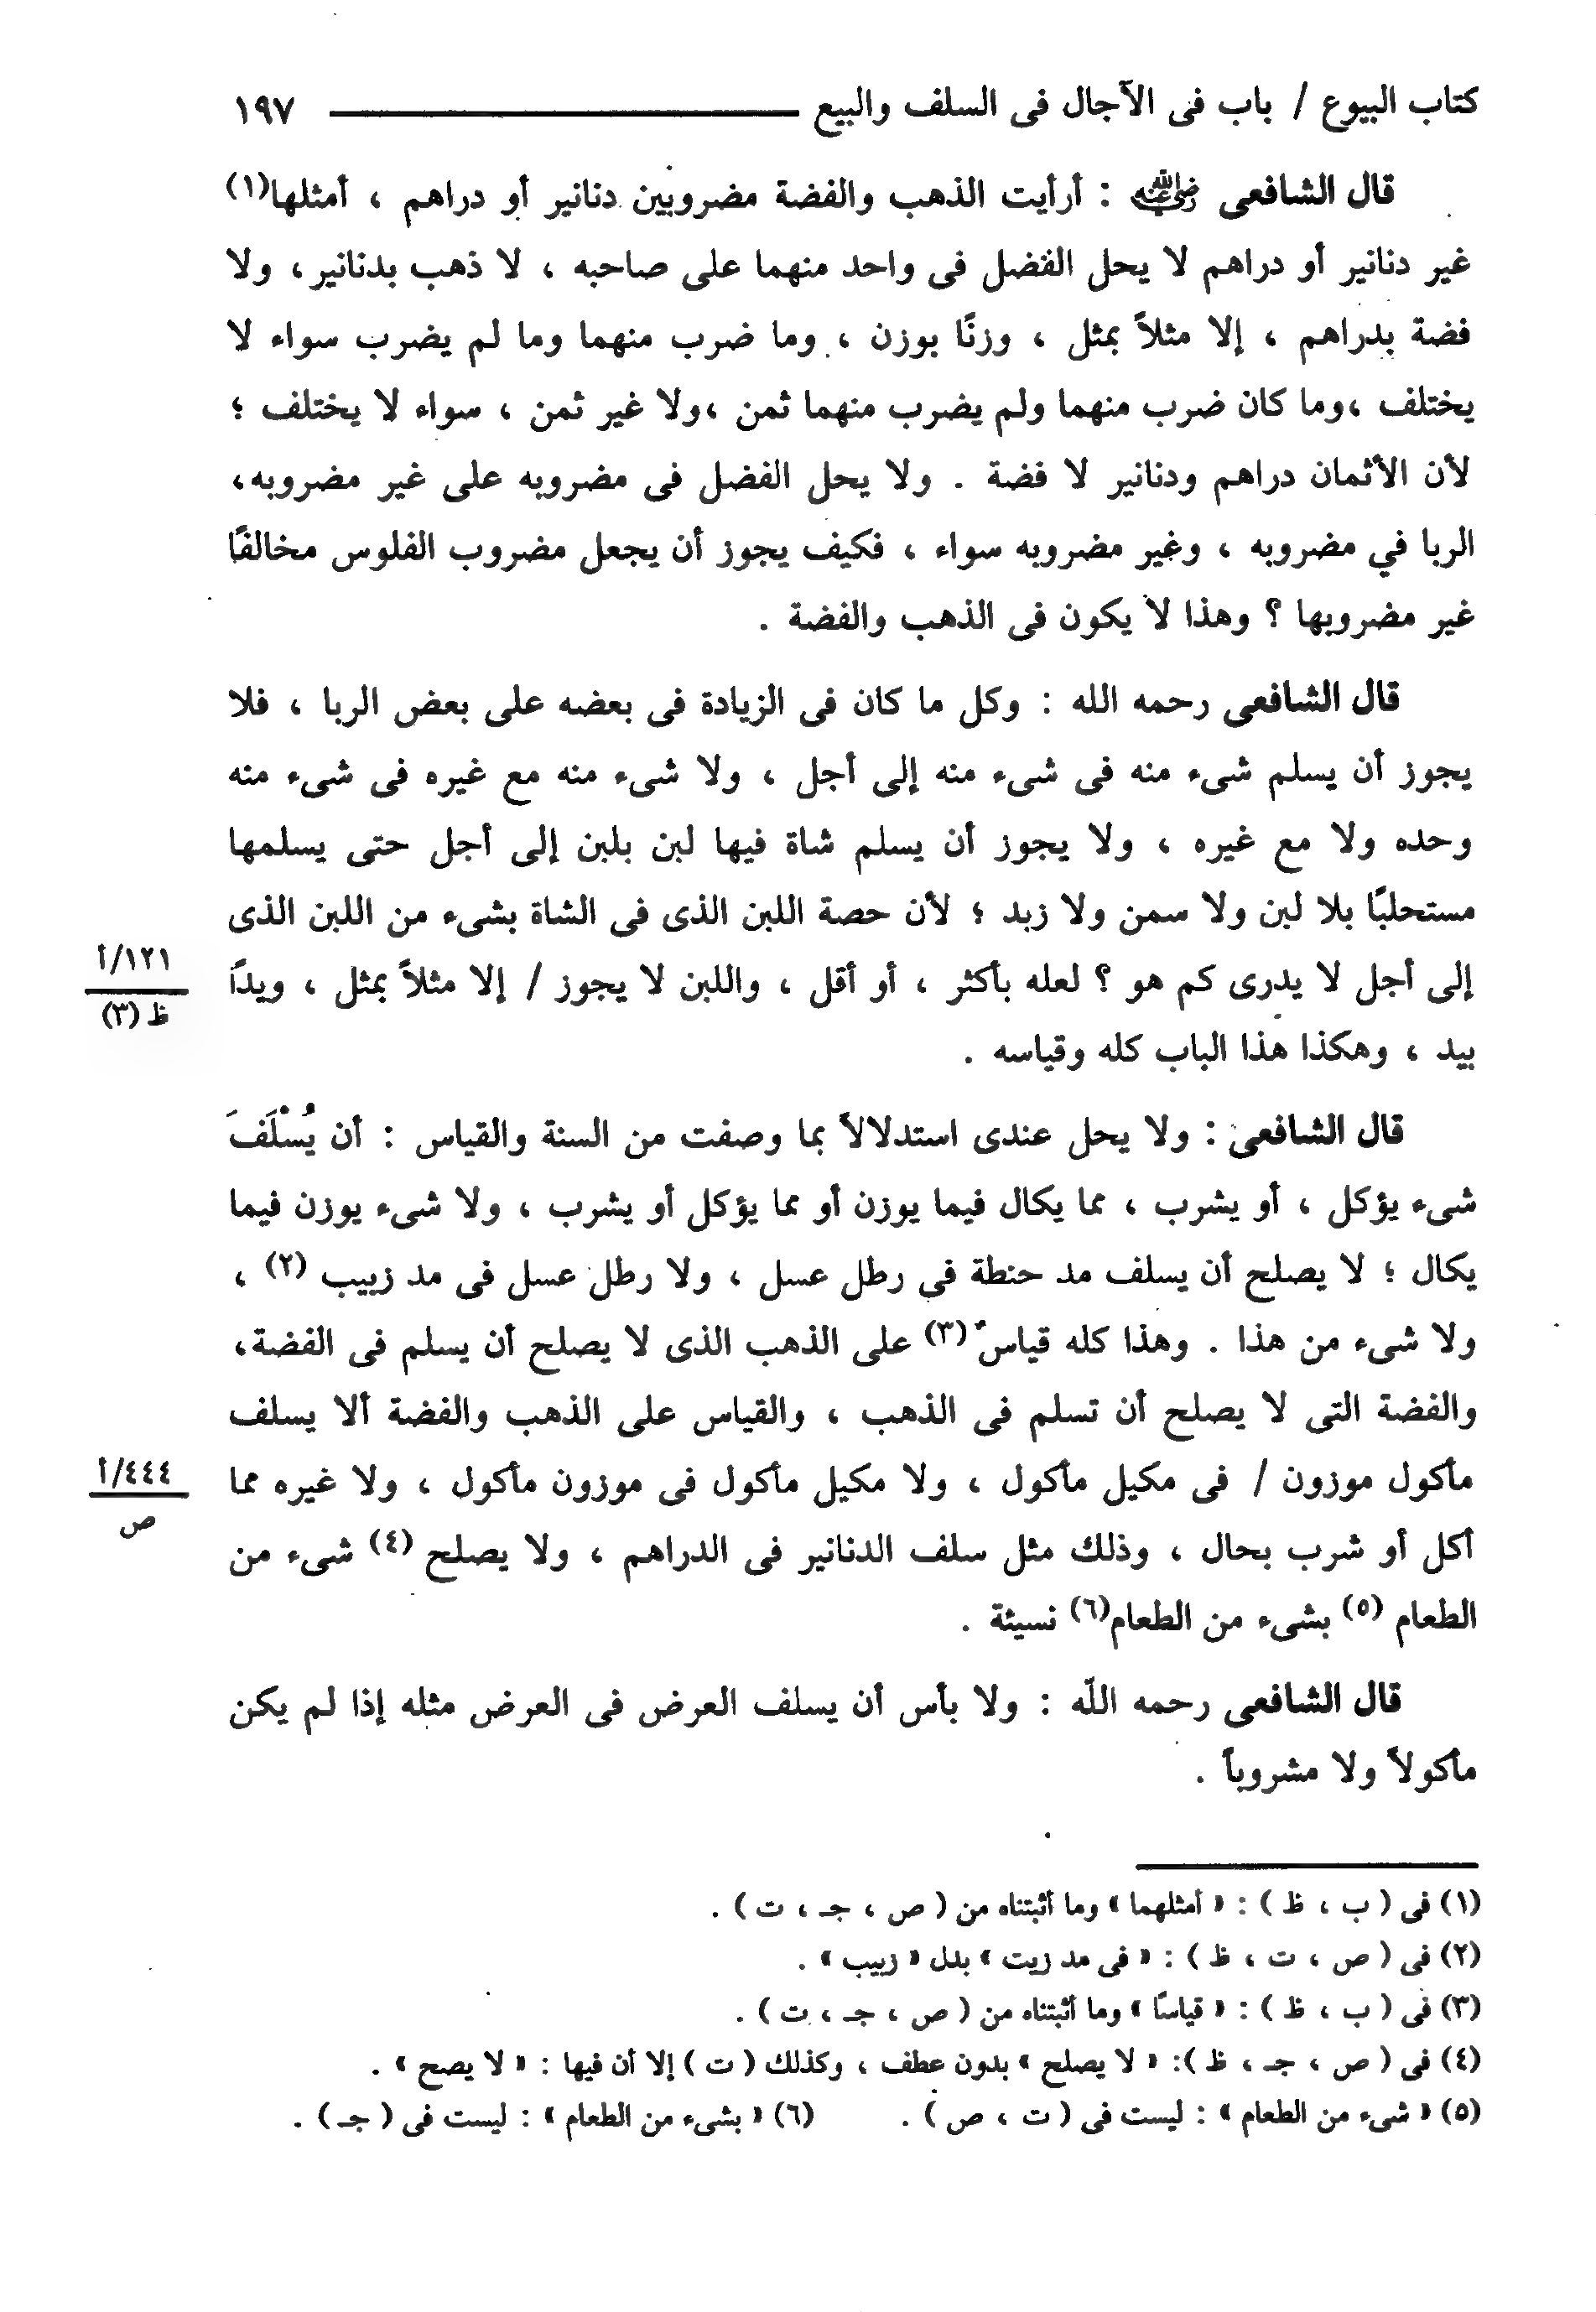 كتاب البيوع / باب فى الآجال فى السلف والبيع ١٩٧
قال الشافعى رضي الله عنه : أرأيت الذهب والفضة مضروبين دنانير أو دراهم ، أمثلها(١)
غير دنانير أو دراهم لا يحل الفضل فى واحد منهما على صاحبه ، لا ذهب بدنانير، ولا
فضة بدراهم ، إلا مثلاً بمثل ، وزنًا بوزن ، وما ضرب منهما وما لم يضرب سواء لا
يختلف ،وما كان ضرب منهما ولم يضرب منهما ثمن ،ولا غير ثمن ، سواء لا يختلف ؛
لأن الأثمان دراهم ودنانير لا فضة . ولا يحل الفضل فى مضروبه على غير مضروبه،
الربا في مضروبه ، وغير مضروبه سواء ، فكيف يجوز أن يجعل مضروب الفلوس مخالفًا
غير مضروبها ؟ وهذا لا يكون فى الذهب والفضة .
قال الشافعى رحمه الله : وكل ما كان فى الزيادة فى بعضه على بعض الربا ، فلا
يجوز أن يسلم شىء منه فى شىء منه إلى أجل ، ولا شىء منه مع غيره فى شىء منه
وحده ولا مع غيره ، ولا يجوز أن يسلم شاة فيها لبن بلبن إلى أجل حتى يسلمها
مستحلبًا بلا لبن ولا سمن ولا زبد ؛ لأن حصة اللبن الذى فى الشاة بشىء من اللبن الذى
إلى أجل لا يدرى كم هو ؟ لعله بأكثر ، أو أقل ، واللبن لا يجوز / إلا مثلاً بمثل ، ويدًا
١٢١/أ
ظ (٣)
بيد ، وهكذا هذا الباب كله وقياسه .
قال الشافعى : ولا يحل عندى استدلالاً بما وصفت من السنة والقياس : أن يُسْلَفَ
شىء يؤكل ، أو يشرب ، مما يكال فيما يوزن أو مما يؤكل أو يشرب ، ولا شىء يوزن فيما
يكال ؛ لا يصلح أن يسلف مد حنطة فى رطل عسل ، ولا رطل عسل فى مد زبيب (٢) ،
ولا شىء من هذا . وهذا كله قياسٌ(٣) على الذهب الذى لا يصلح أن يسلم فى الفضة،
والفضة التى لا يصلح أن تسلم فى الذهب ، والقياس على الذهب والفضة ألا يسلف
مأكول موزون / فى مكيل مأكول ، ولا مكيل مأكول فى موزون مأكول ، ولا غيره مما
٤٤٤/أ
ص
أكل أو شرب بحال ، وذلك مثل سلف الدنانير فى الدراهم ، ولا يصلح (٤) شىء من
الطعام (٥) بشىء من الطعام(٦) نسيئة .
قال الشافعى رحمه اللّه : ولا بأس أن يسلف العرض فى العرض مثله إذا لم يكن
مأكولاً ولا مشروباً .
(١) فى ( ب ، ظ ) : « أمثلهما » وما أثبتناه من ( ص ، جـ ، ت ) .
(٢) فى ( ص ، ت ، ظ ) : « فى مد زيت » بدل « زبيب » .
(٣) فى ( ب ، ظ ) : « قياسًا » وما أثبتناه من ( ص ، جـ ، ت ) .
(٤) فى ( ص ، جـ ، ظ ): « لا يصلح » بدون عطف ، وكذلك ( ت ) إلا أن فيها : « لا يصح » .
(٥) « شىء من الطعام » : ليست فى ( ت ، ص ) . (٦) « بشىء من الطعام » : ليست فى ( جـ ) .